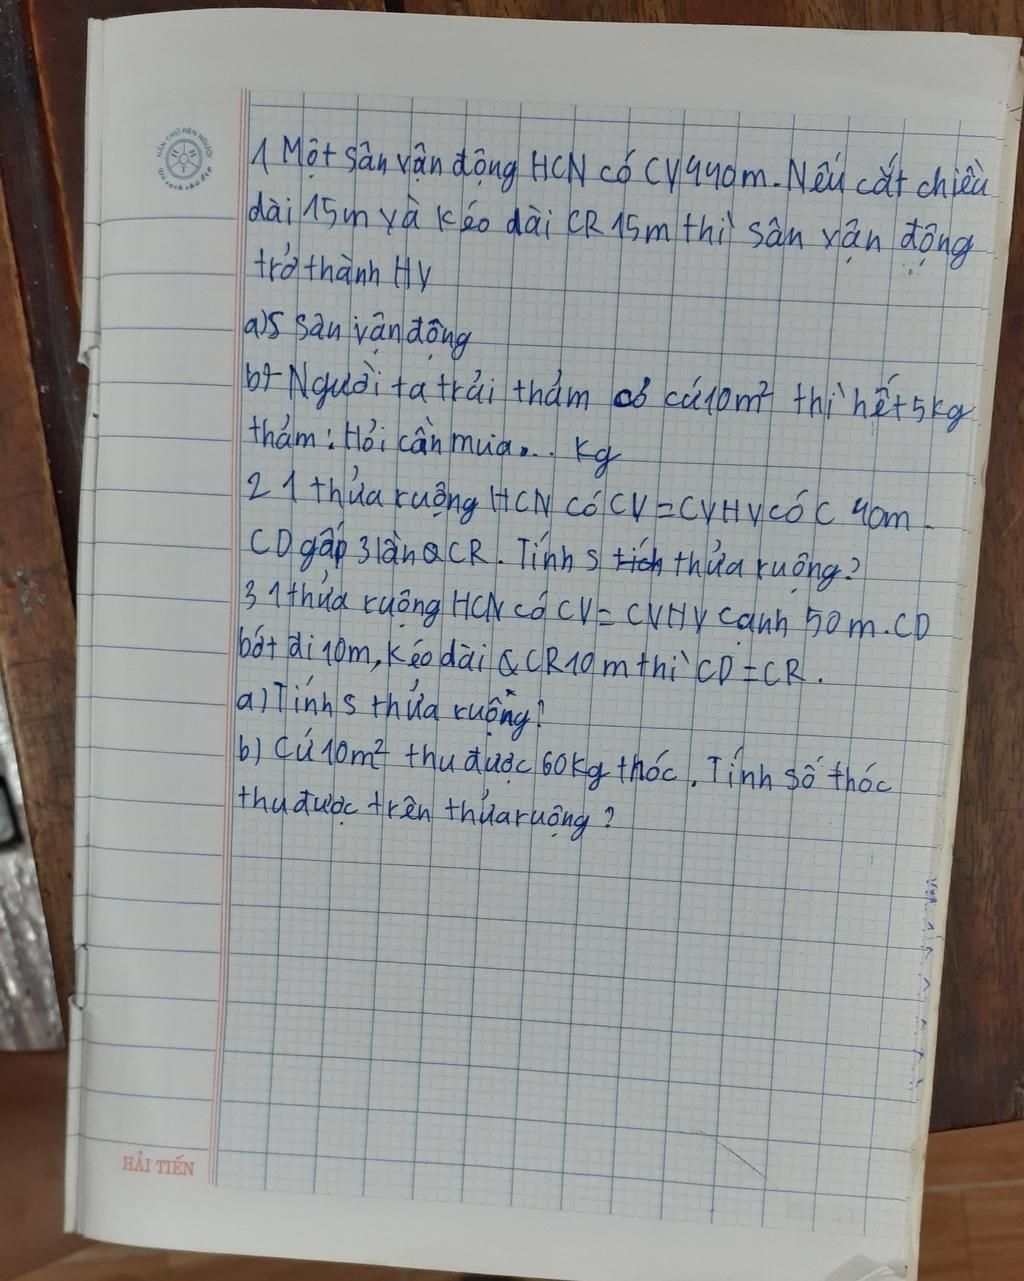 NÂN CHỮ NÊN NGƯỜI
Vở sạch chữ đẹp
1 Một sân vận động HCN có CV 440m. Nếu cắt chiều
dài 15m và kéo dài CR 15m thì sân vận động
trở thành HV
a) S sân vận động
b) Người ta trải thảm cỏ cứ 10m² thì hết 5kg
thảm. Hỏi cần mua... kg
2 1 thửa ruộng HCN có CV = CVHV có C 40m.
CD gấp 3 lần CR. Tính S tích thửa ruộng?
3 1 thửa ruộng HCN có CV = CVHV cạnh 50m. CD
bớt đi 10m, kéo dài CR 10m thì CD = CR.
a) Tính S thửa ruộng?
b) Cứ 10m² thu được 60kg thóc. Tính số thóc
thu được trên thửa ruộng?
HẢI TIẾN